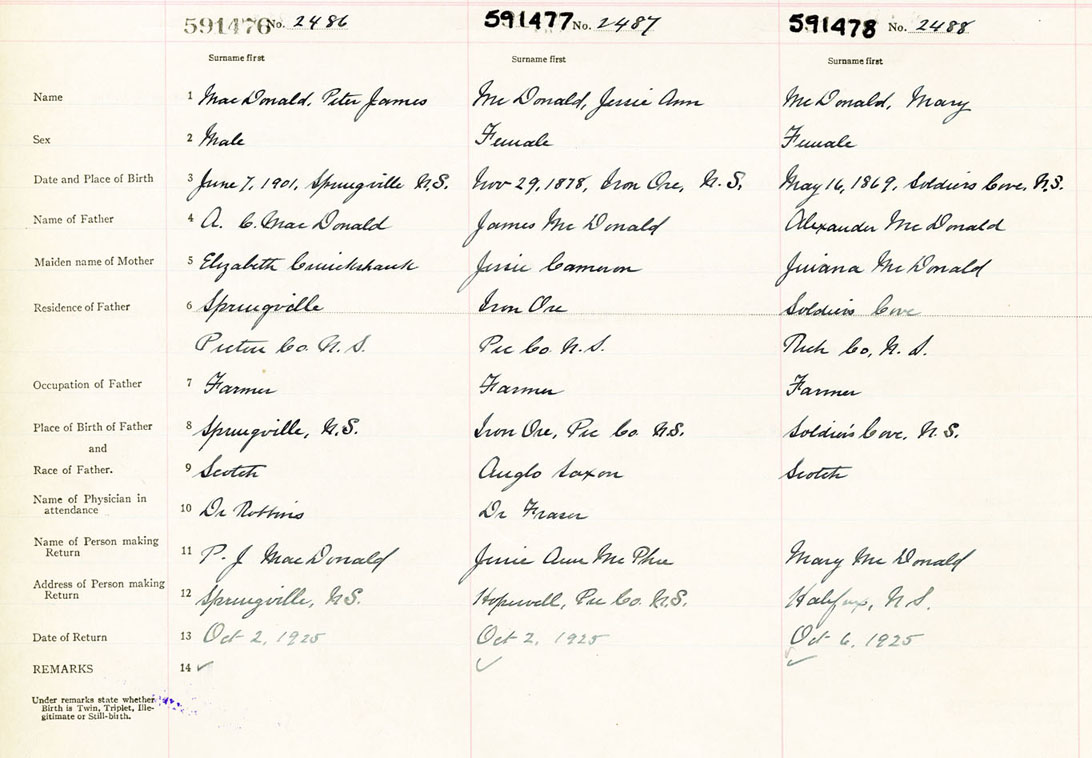 591476 No. 2486 591477 No. 2487 591478 No. 2488
Surname first Surname first Surname first
Name 1 MacDonald, Peter James McDonald, Jessie Ann McDonald, Mary
Sex 2 Male Female Female
Date and Place of Birth 3 June 7, 1901, Springville N.S. Nov 29, 1878, Iron Ore, N.S. May 16, 1869, Soldiers Cove, N.S.
Name of Father 4 A. C. MacDonald James McDonald Alexander McDonald
Maiden name of Mother 5 Elizabeth Cruickshank Jessie Cameron McDonald
Residence of Father 6 Springville Iron Ore Soldiers Cove
Pictou Co. N.S. Pic Co. N.S. Rich Co, N.S.
Occupation of Father 7 Farmer Farmer Farmer
Place of Birth of Father 8 Springville, N.S. Iron Ore, Pic Co. N.S. Soldiers Cove, N.S.
and
Race of Father. 9 Scotch Anglo Saxon Scotch
Name of Physician in
attendance 10 Dr Robbins Dr Fraser
Name of Person making
Return 11 P. J. MacDonald Jessie Ann McPhee Mary McDonald
Address of Person making
Return 12 Springville, N.S. Hopewell, Pic Co. N.S. Halifax, N.S.
Date of Return 13 Oct 2, 1925 Oct 2, 1925 Oct 6, 1925
REMARKS 14 ✓ ✓ ✓
Under remarks state whether
Birth is Twin, Triplet, Ille-
gitimate or Still-birth.